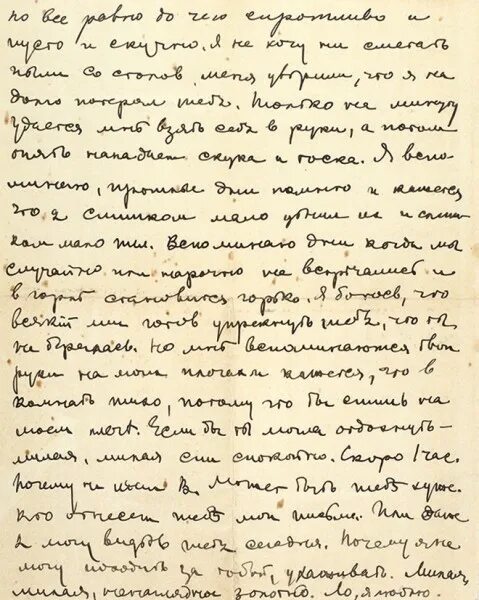 но все равно до чего сиротливо и
пусто и скучно. Я не хочу ни сметать
пыли со столов, меня уверили, что я на
долго потерял тебя. Только на минуту
удается мнѣ взять себя в руки, а потом
опять нападает скука и тоска. Я вспо-
минаю, прошлые дни помню и кажется
что я слишком мало ценил их и слиш-
ком мало ты. Вспоминаю дни когда мы
случайно или нарочно не встречались и
в горлѣ становится горько. Я боюсь, что
всякий миг готов упрекнуть тебя, что ты
не береглась. Но мнѣ вспоминаются твои
руки на моих плечах и кажется, что в
комнатѣ тихо, потому что ты спишь на
моем плечѣ. Если бы ты могла отдохнуть –
милая, милая спи спокойно. Скоро 1 час.
Почему не В. Может быть тебѣ хуже.
Кто отнесет тебѣ мои письма. Или даже
я могу видѣть тебя сегодня. Почему я не
могу походить за тобой, ухаживать. Милая,
милая, ненаглядное золотко. Лю, я люблю.